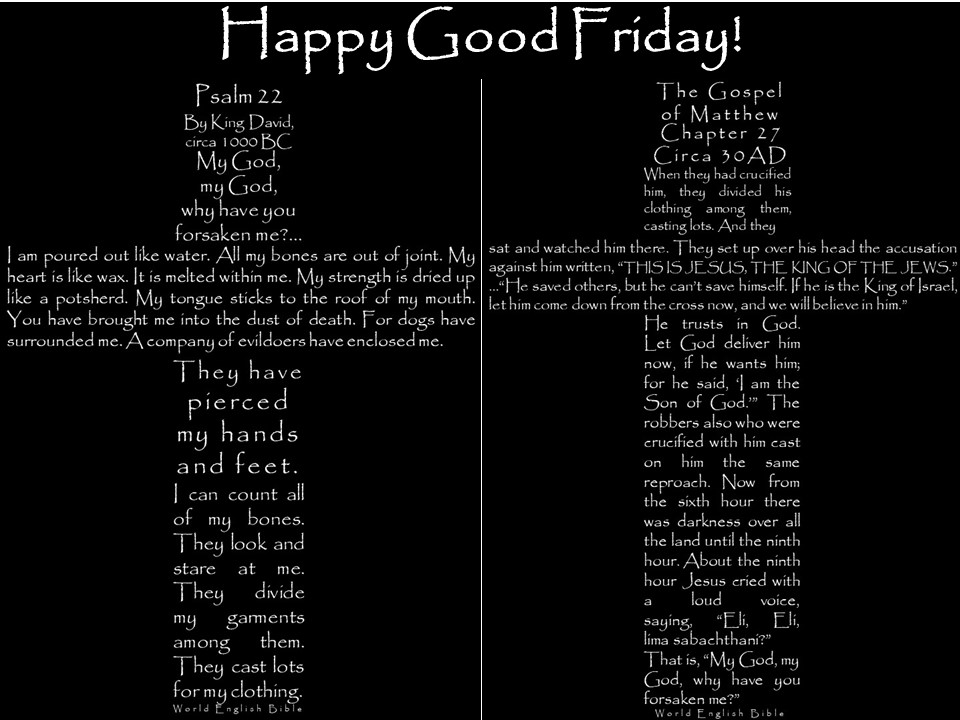 Happy Good Friday!
Psalm 22
By King David,
circa 1000 BC
My God,
my God,
why have you
forsaken me?...
I am poured out like water. All my bones are out of joint. My
heart is like wax. It is melted within me. My strength is dried up
like a potsherd. My tongue sticks to the roof of my mouth.
You have brought me into the dust of death. For dogs have
surrounded me. A company of evildoers have enclosed me.
They have
pierced
my hands
and feet.
I can count all
of my bones.
They look and
stare at me.
They divide
my garments
among them.
They cast lots
for my clothing.
World English Bible
The Gospel
of Matthew
Chapter 27
Circa 30AD
When they had crucified
him, they divided his
clothing among them,
casting lots. And they
sat and watched him there. They set up over his head the accusation
against him written, “THIS IS JESUS, THE KING OF THE JEWS.”
...“He saved others, but he can’t save himself. If he is the King of Israel,
let him come down from the cross now, and we will believe in him.”
He trusts in God.
Let God deliver him
now, if he wants him;
for he said, ‘I am the
Son of God.’” The
robbers also who were
crucified with him cast
on him the same
reproach. Now from
the sixth hour there
was darkness over all
the land until the ninth
hour. About the ninth
hour Jesus cried with
a loud voice,
saying, “Eli, Eli,
lima sabachthani?”
That is, “My God, my
God, why have you
forsaken me?”
World English Bible